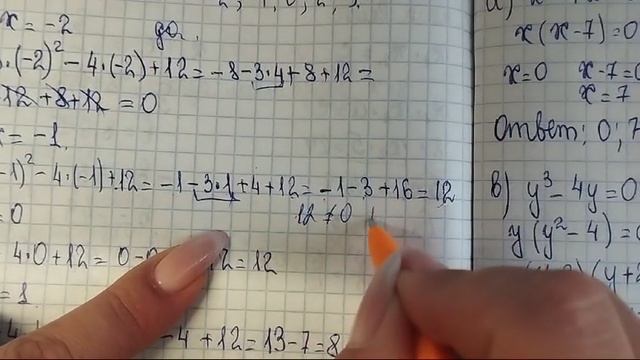 x = -2 да.
·(-2)² - 4·(-2) + 12 = -8 - 3·4 + 8 + 12 =
12 + 8 + 12 = 0
x = -1.
-1)² - 4·(-1) + 12 = -1 - 3·1 + 4 + 12 = -1 - 3 + 16 = 12
= 0 12 ≠ 0
4·0 + 12 = 0 - 12 = 12
= 1
-4 + 12 = 13 - 7 = 8
x(x-7) = 0
x = 0 x - 7 = 0
x = 7
Ответ: 0; 7
в) y³ - 4y = 0
y(y² - 4) =
(y +